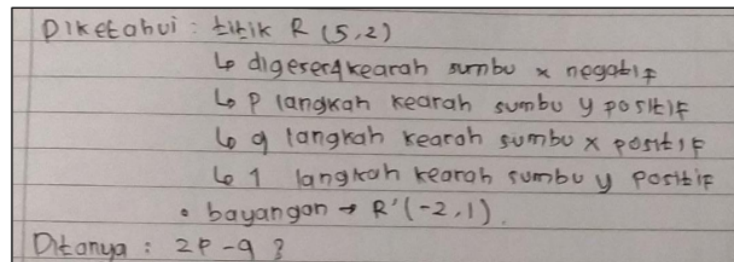 Diketahui : titik R (5,2)
↳ digeser 4 kearah sumbu x negatif
↳ p langkah kearah sumbu y positif
↳ q langkah kearah sumbu x positif
↳ 1 langkah kearah sumbu y positif
• bayangan → R'(-2,1).
Ditanya : 2p - q ?